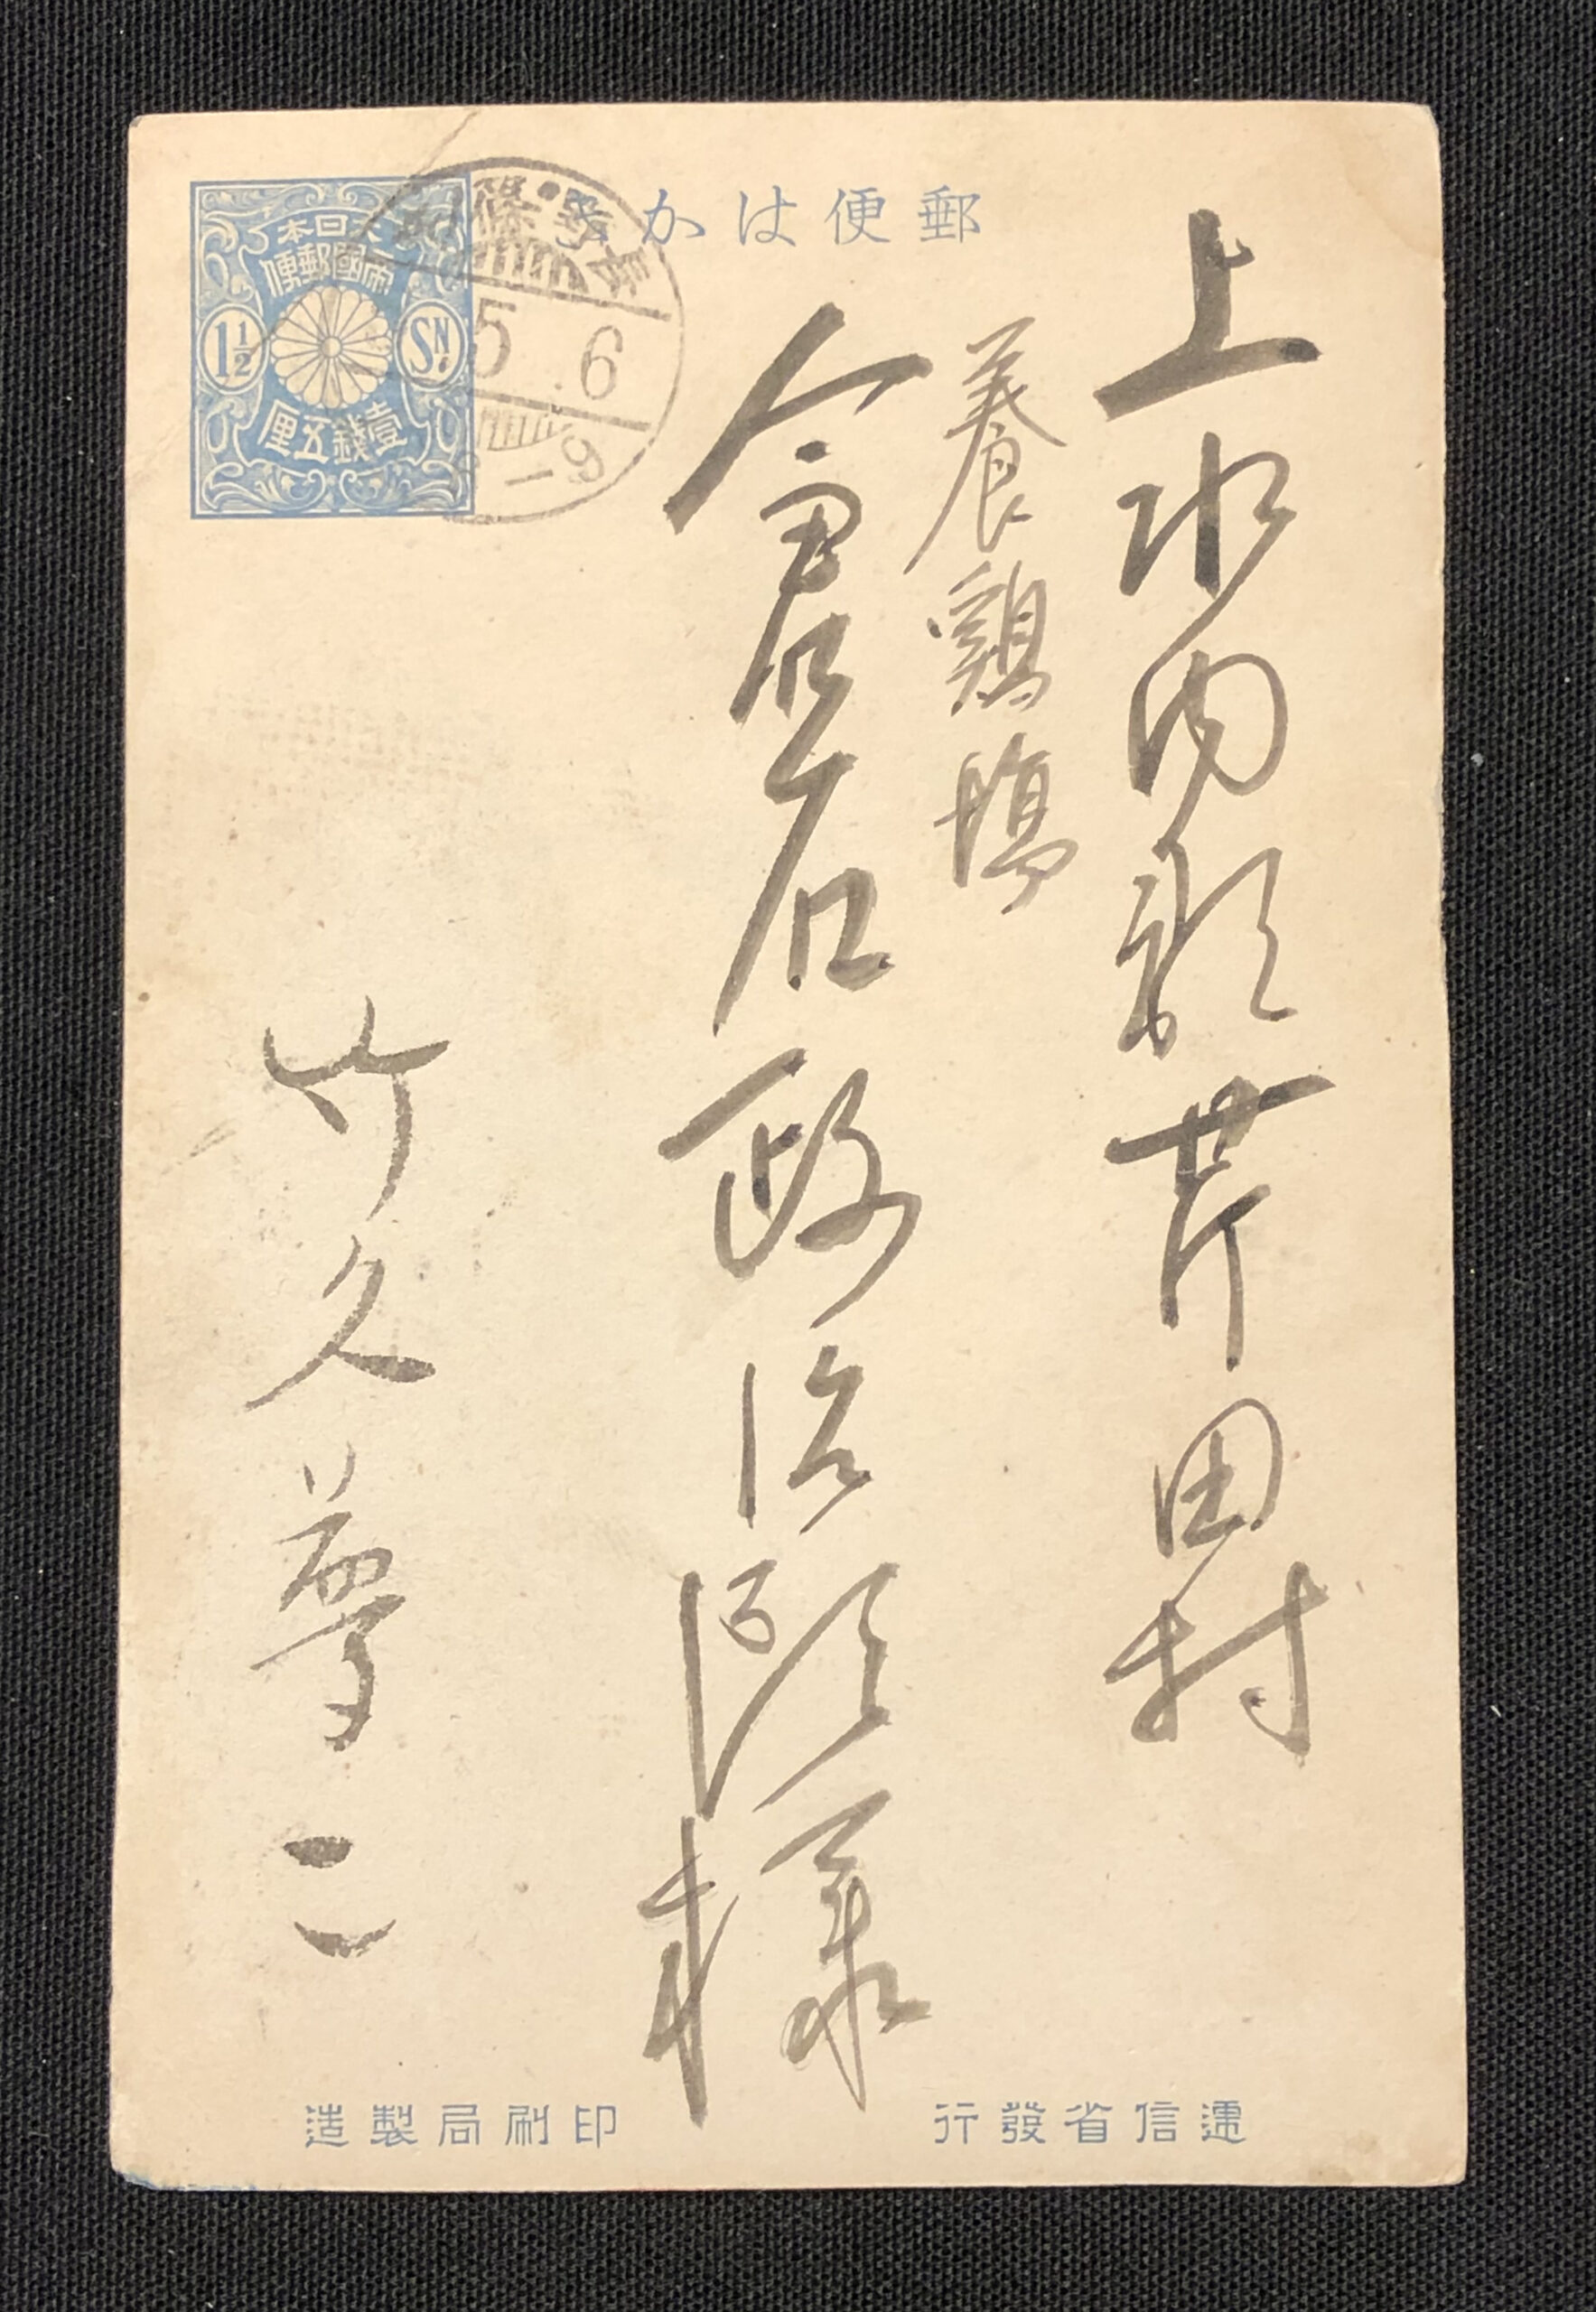 郵便はかき
大日本
帝國郵便
1½ SN
壹錢五厘
5 .6
上水内郡芹田村
養鶏場
倉石政治郎様
竹久夢二
遞信省發行
印刷局製造